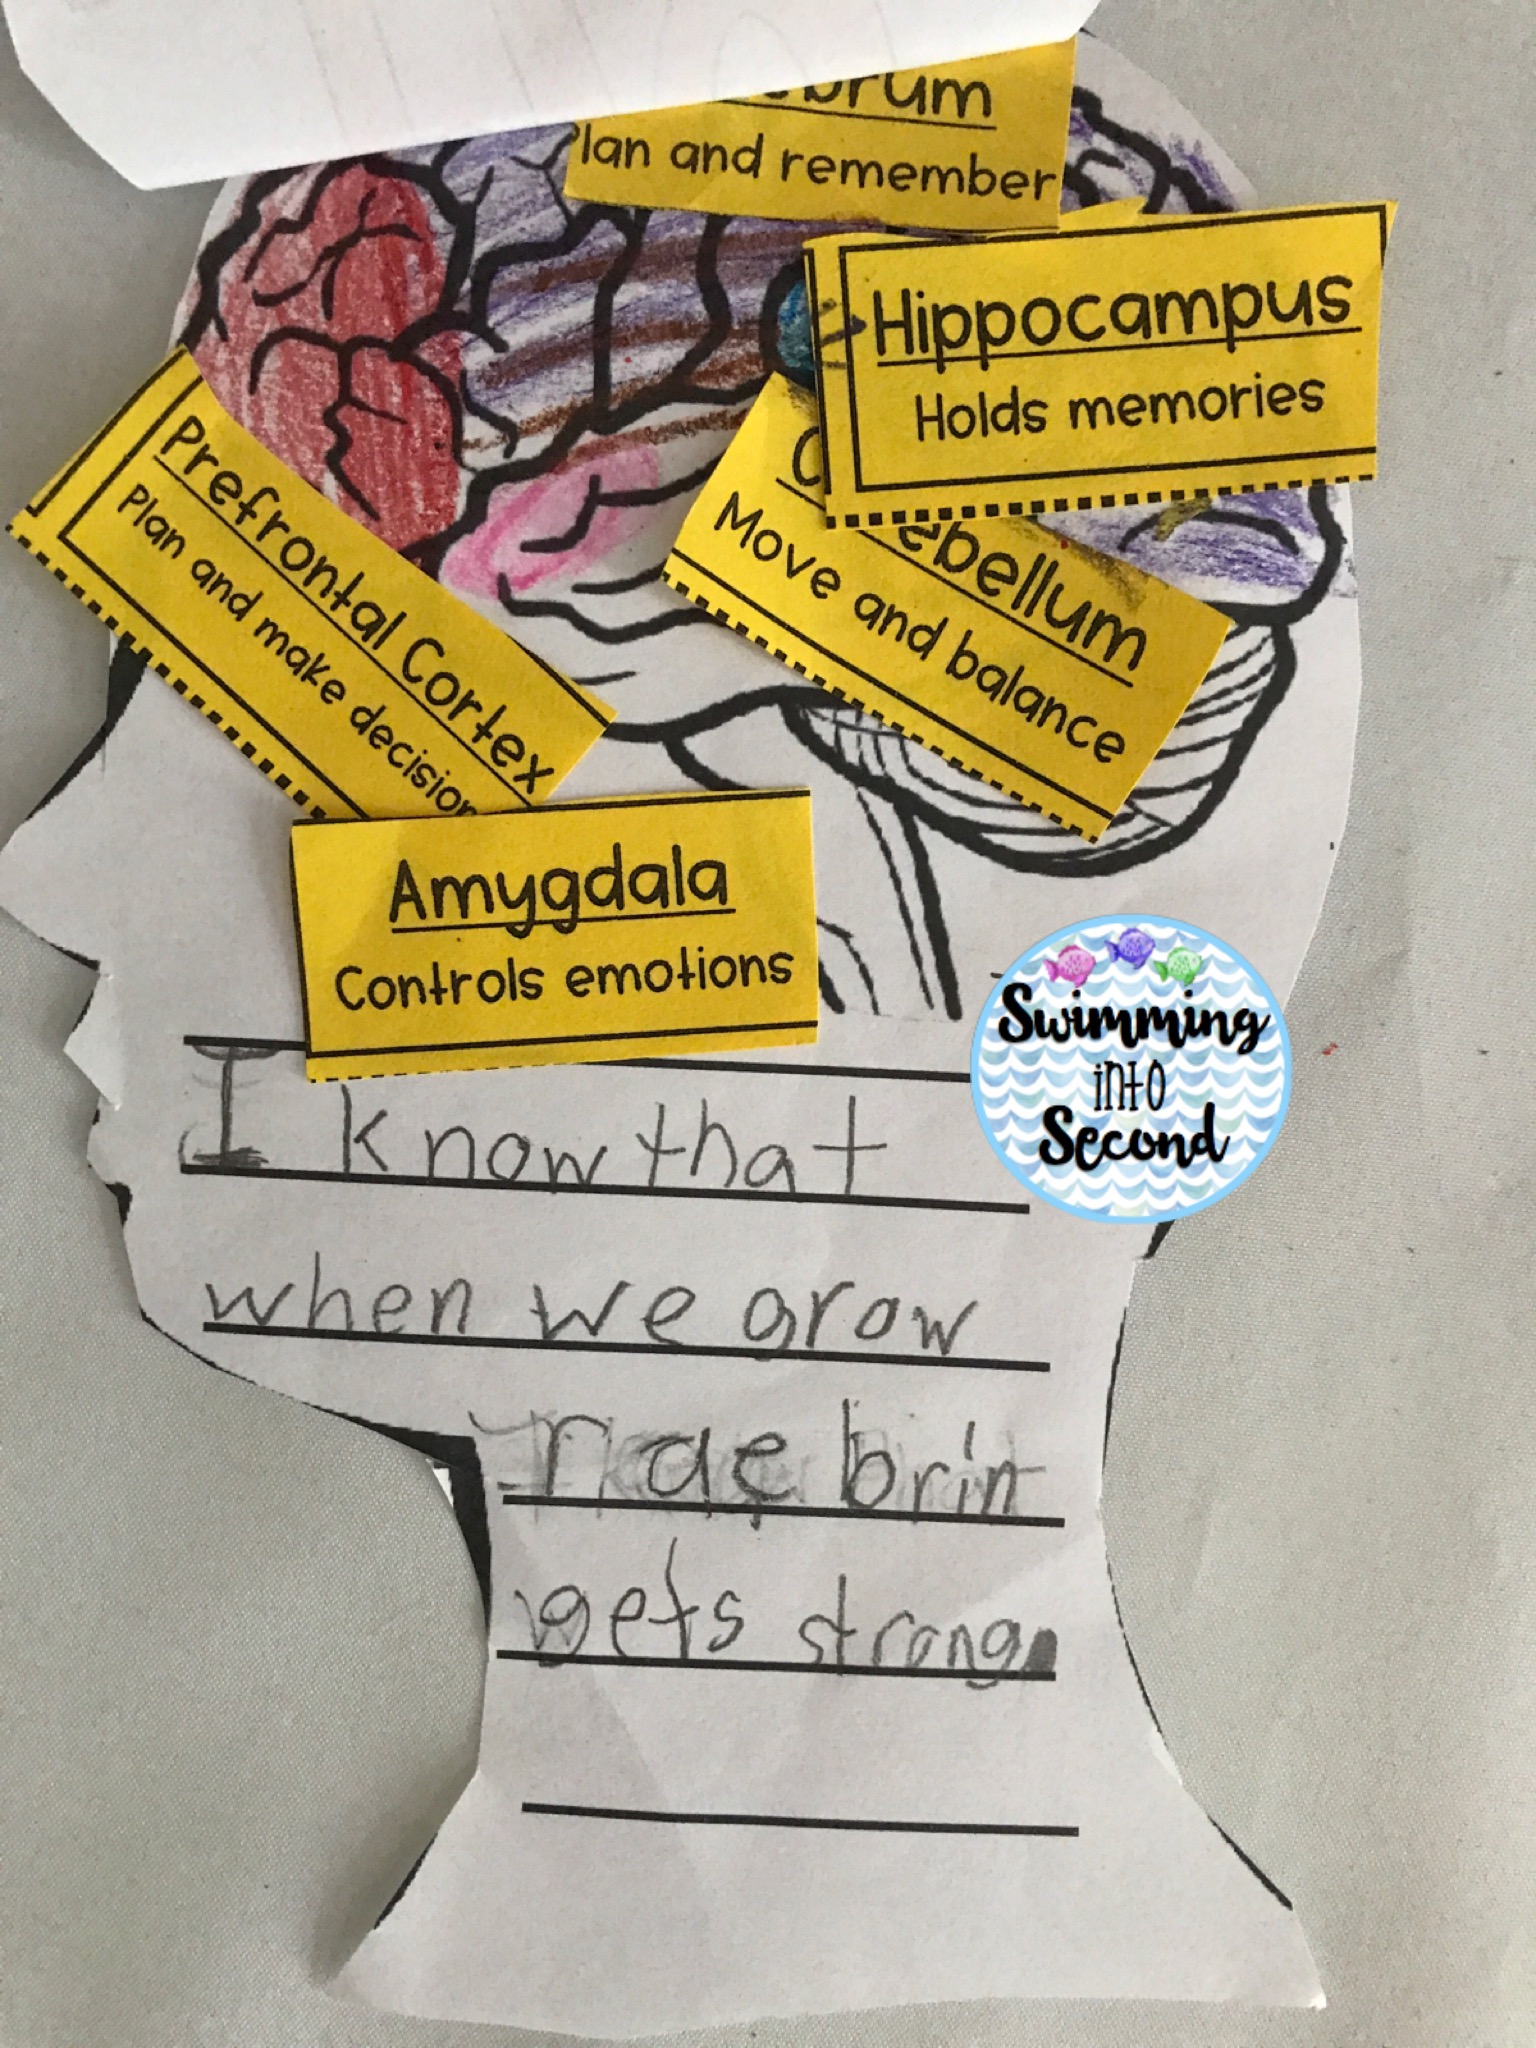 brum
Plan and remember
Hippocampus
Holds memories
Prefrontal Cortex
Plan and make decision
ebellum
Move and balance
Amygdala
Controls emotions
Swimming
into
Second
I know that
when we grow
rae brin
gets strong